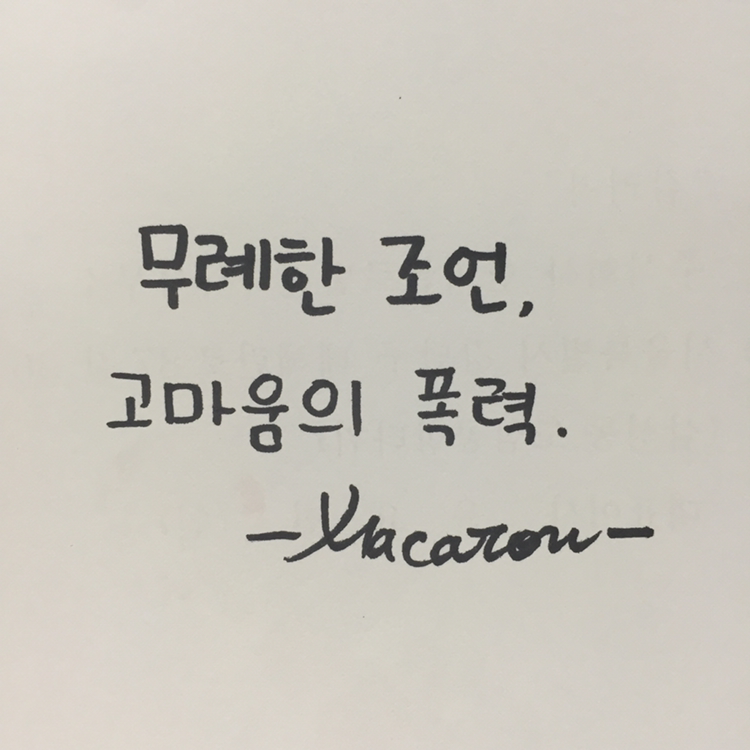 무례한 조언,
고마움의 폭력.
-Macaron-